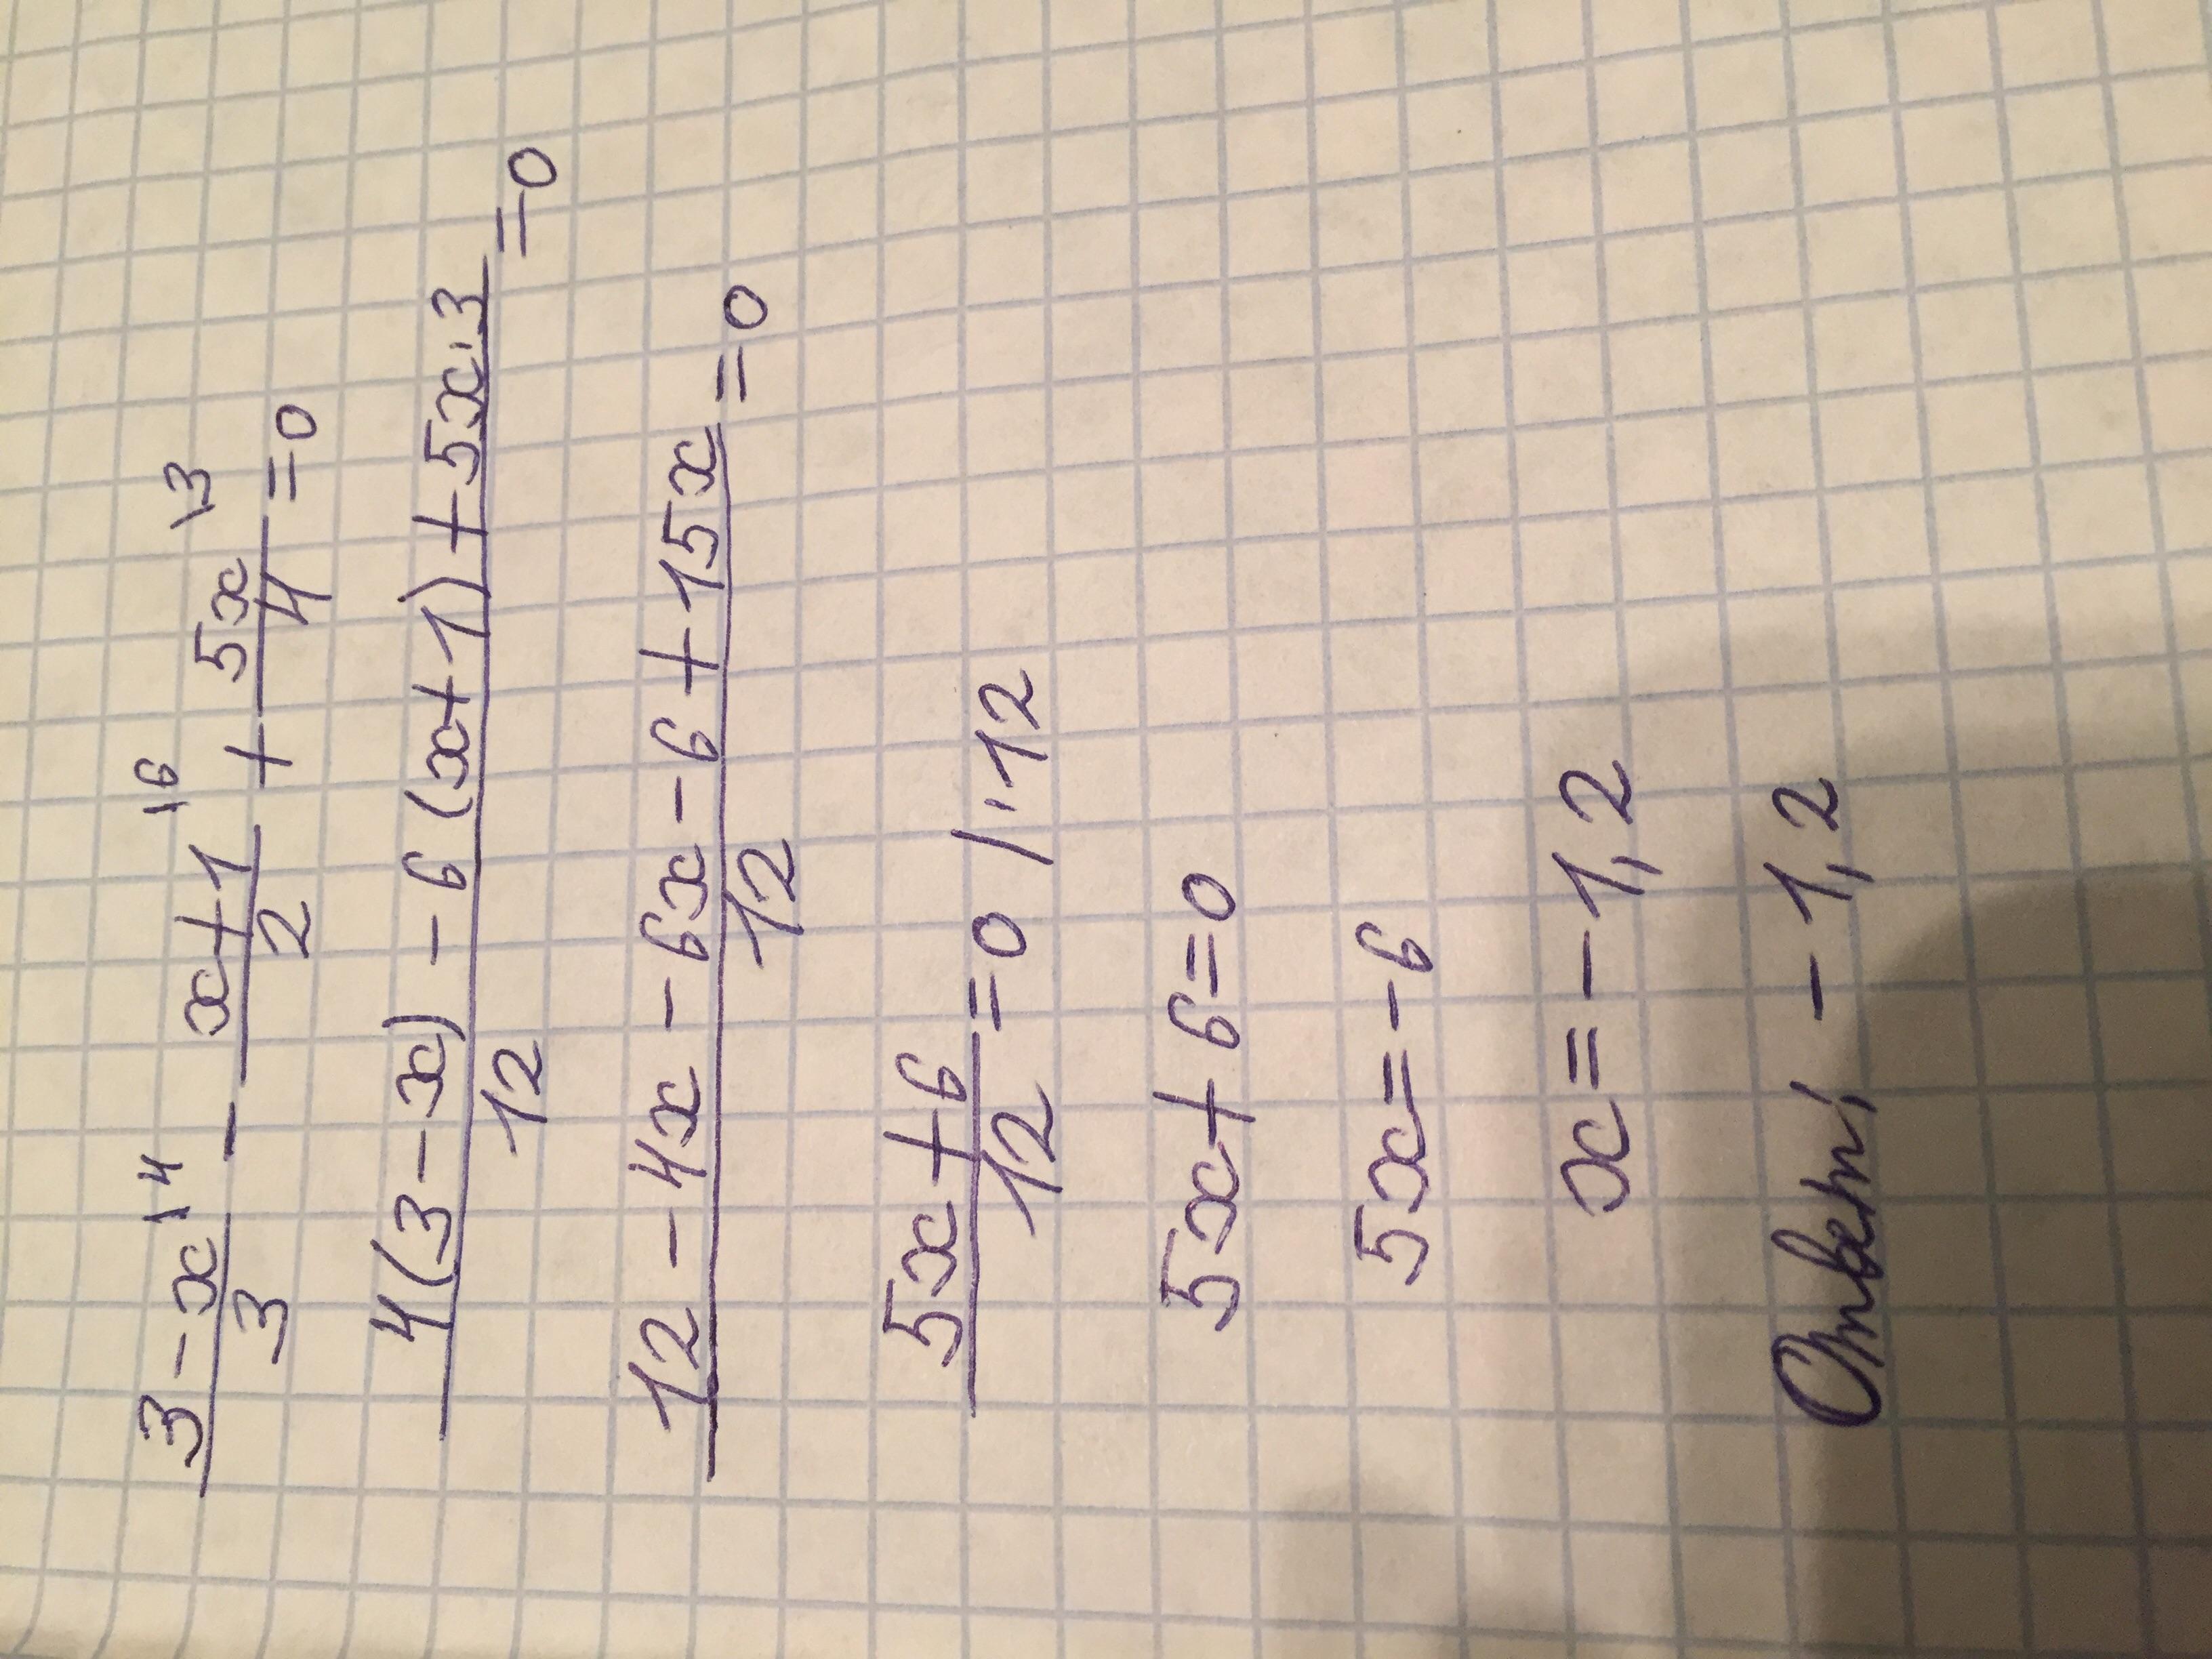 (3-x)/3 \4 - (x+1)/2 \6 + 5x/4 \3 =0
(4(3-x)-6(x+1)+5x·3)/12 =0
(12-4x-6x-6+15x)/12 =0
(5x+6)/12 =0 /·12
5x+6=0
5x=-6
x=-1,2
Ответ: -1,2